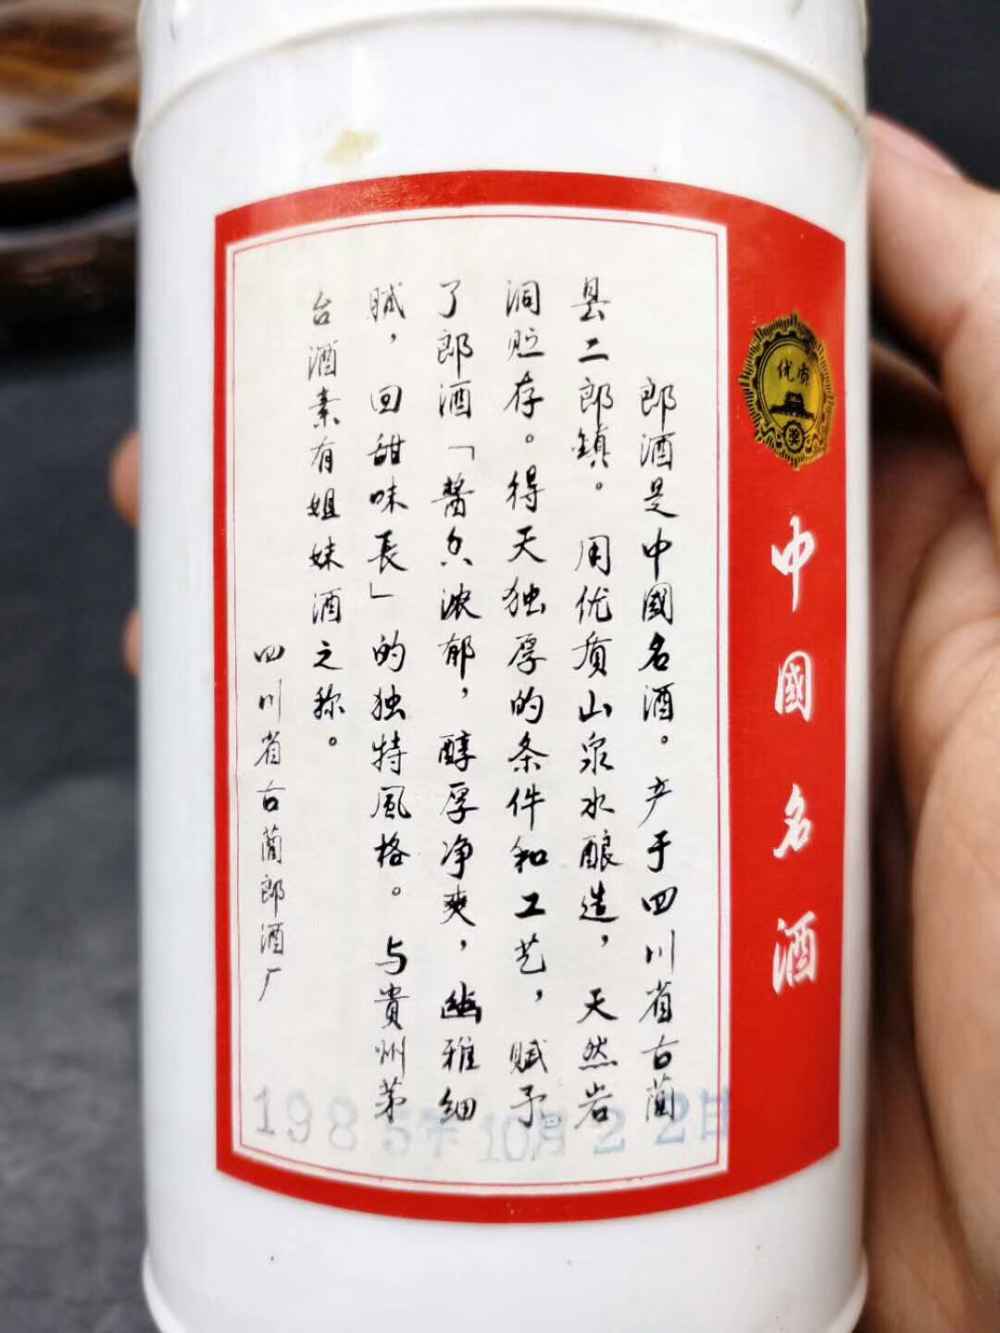 优质
中國名酒
郎酒是中國名酒。产于四川省古蔺
县二郎鎮。用优质山泉水酿造，天然岩
洞贮存。得天独厚的条件和工艺，赋予
了郎酒「醬香浓郁，醇厚净爽，幽雅细
腻，回甜味長」的独特風格。与貴州茅
台酒素有姐妹酒之称。
四川省古蔺郎酒厂
1985年10月22日